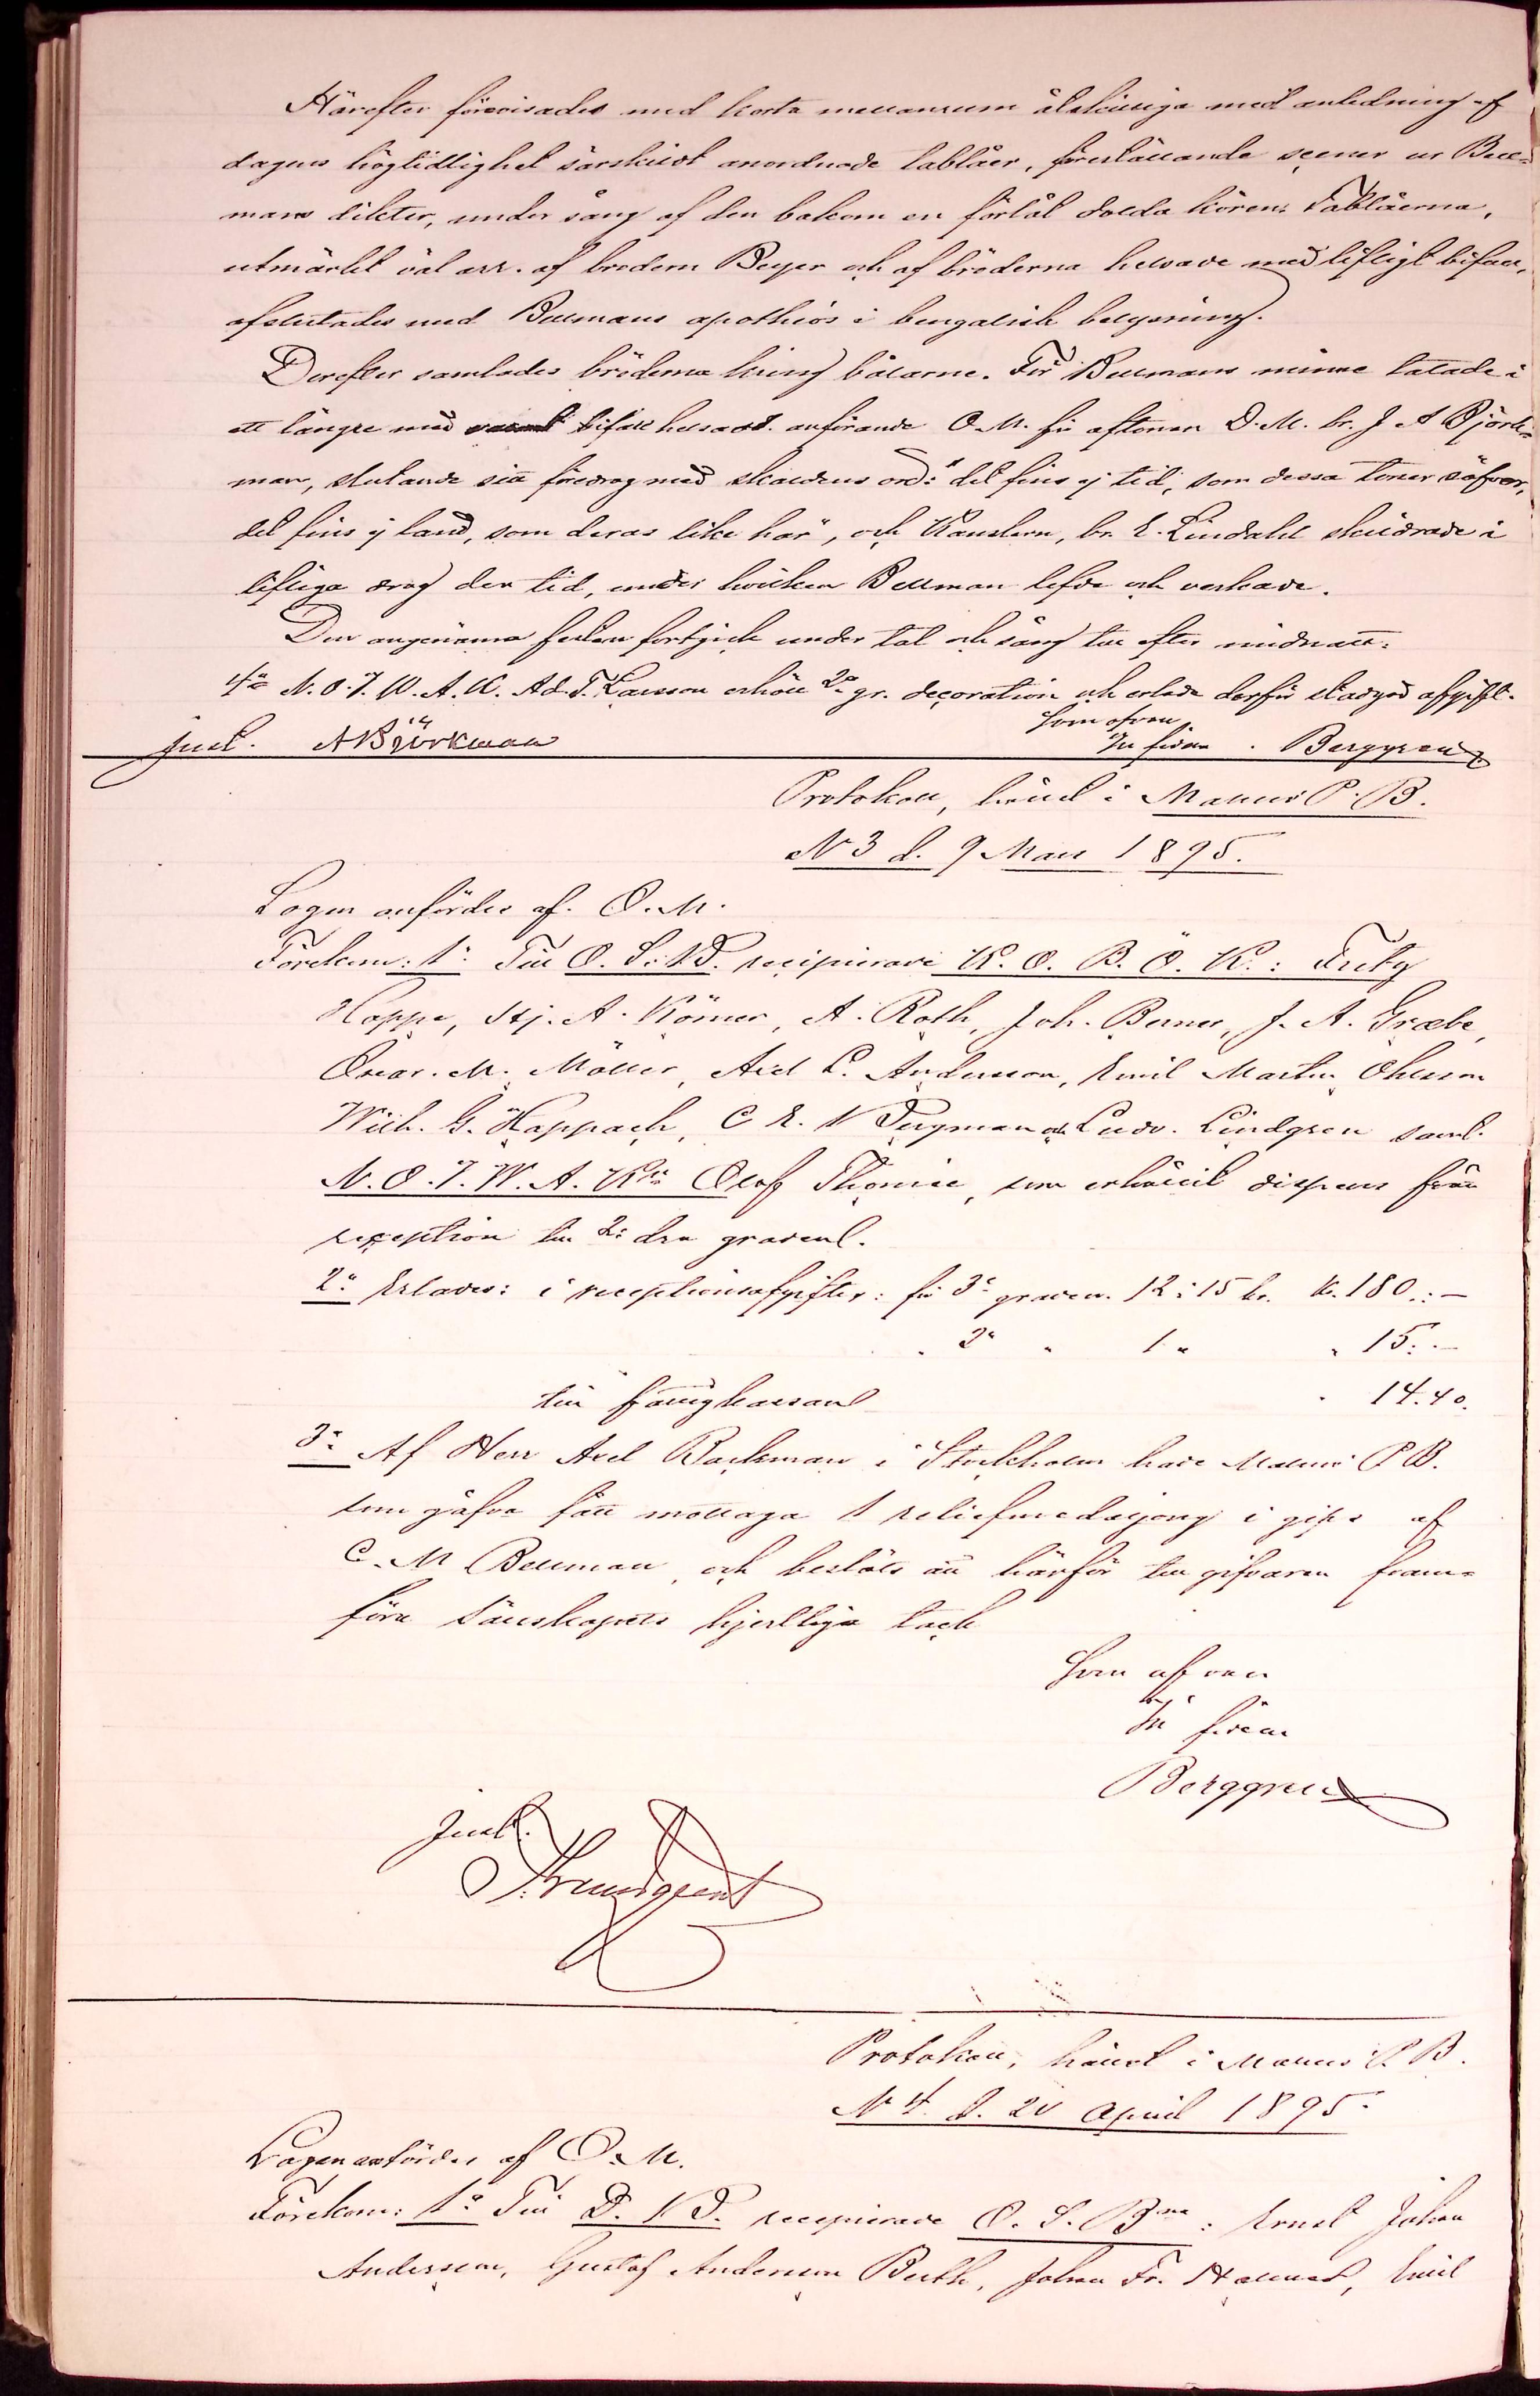 Härefter förevisades med korta mellanrum åtskilliga med anledning af
dagens högtidlighet särskildt anordnade tablåer, föreställande scener ur Bell=
mans dikter, under sång af den bakom en förlåt dolda kören. Tablåerna,
utmärkt väl arr. af brodern Beyer och af bröderna helsade med lifligt bifall,
afslutades med Bellmans apotheos i bengalisk belysning.
Derefter samlades bröderna kring bålarne. För Bellmans minne talade i
ett längre med bifall helsadt anförande O. M. för aftonen D. M. br. J A Björk=
man, slutande sitt föredrag med skaldens ord: "det fins ej tid, som dessa toner söfver,
det fins ej land, som deras like har", och Kanslern, br. E. Lindahl skildrade i
lifliga drag den tid, under hvilken Bellman lefde och verkade.
Den angenäma festen fortgick under tal och sång till efter midnatt.
4o N. O. T. W. A. K. Ad. T. Larsson erhöll 2a gr. decoration och erlade derför stadgad afgift.
Som ofvan
Just. A Björkman In fidem. Berggren
Protokoll, hållet i Malmö P. B.
N 3 d. 9 Mars 1895.
Logen anfördes af O. M.
Förekom: 1o Till O. S. N. D. recipierade K. O. B. Ö. K.: Fritz
Hoppe, Hj. A. Römer, A. Roth, Joh. Berner, J. A. Græbe,
Oscar. M. Möller, Axel C. Andersson, Emil Martin Ohlsson
Wilh. G. Happach, C E. N Tugman och Ludv. Lindgren samt
N. O. T. W. A. Kn Olof Thomée, som erhållit dispens från
reception till 2:dra graden.
2o Erlades: i receptionsafgifter: för 3e graden 12 : 15 kr. Kr. 180.: –
" 2a " 1 " " 15: –
till fångkassan " 14.40.
3o Af Herr Axel Backman i Stockholm hade Malmö P B.
som gåfva fått mottaga 1 reliefmedaljong i gips af
C. M Bellman, och beslöts att härför till gifvaren fram=
föra Sällskapets hjertliga tack
Som ofvan
In fidem
Berggren
Just.
Protokoll, hållet i Malmö P. B.
N 4 d. 20 April 1895.
Logen anfördes af O. M.
Förekom: 1o Till D. N D. recipierade O. S. Bna: Ernst Johan
Andersson, Gustaf Anderson Beith, Johan Fr. Hallmér, Emil